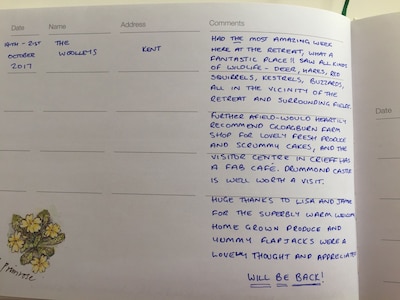 Date Name Address Comments
14TH - 21ST THE WOOLLEYS KENT
OCTOBER
2017
HAD THE MOST AMAZING WEEK
HERE AT THE RETREAT, WHAT A
FANTASTIC PLACE!! SAW ALL KINDS
OF WILDLIFE - DEER, HARES, RED
SQUIRRELS, KESTRELS, BUZZARDS,
ALL IN THE VICINITY OF THE
RETREAT AND SURROUNDING FIELDS.
FURTHER AFIELD - WOULD HEARTILY
RECOMMEND GLOAGBURN FARM
SHOP FOR LOVELY FRESH PRODUCE
AND SCRUMMY CAKES, AND THE
VISITOR CENTRE IN CRIEFF HAS
A FAB CAFÉ. DRUMMOND CASTLE
IS WELL WORTH A VISIT.
HUGE THANKS TO LISA AND JAMIE
FOR THE SUPERBLY WARM WELCOME,
HOME GROWN PRODUCE AND
YUMMY FLAPJACKS WERE A
LOVELY THOUGHT AND APPRECIATED
WILL BE BACK!
Primrose
Date